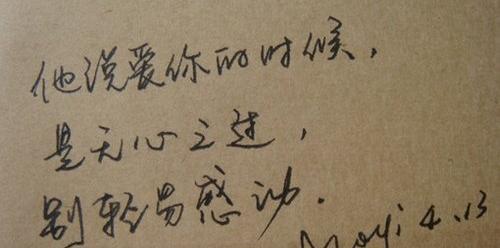 他说爱你的时候，
是无心之过，
别轻易感动．
Moyi 4.13